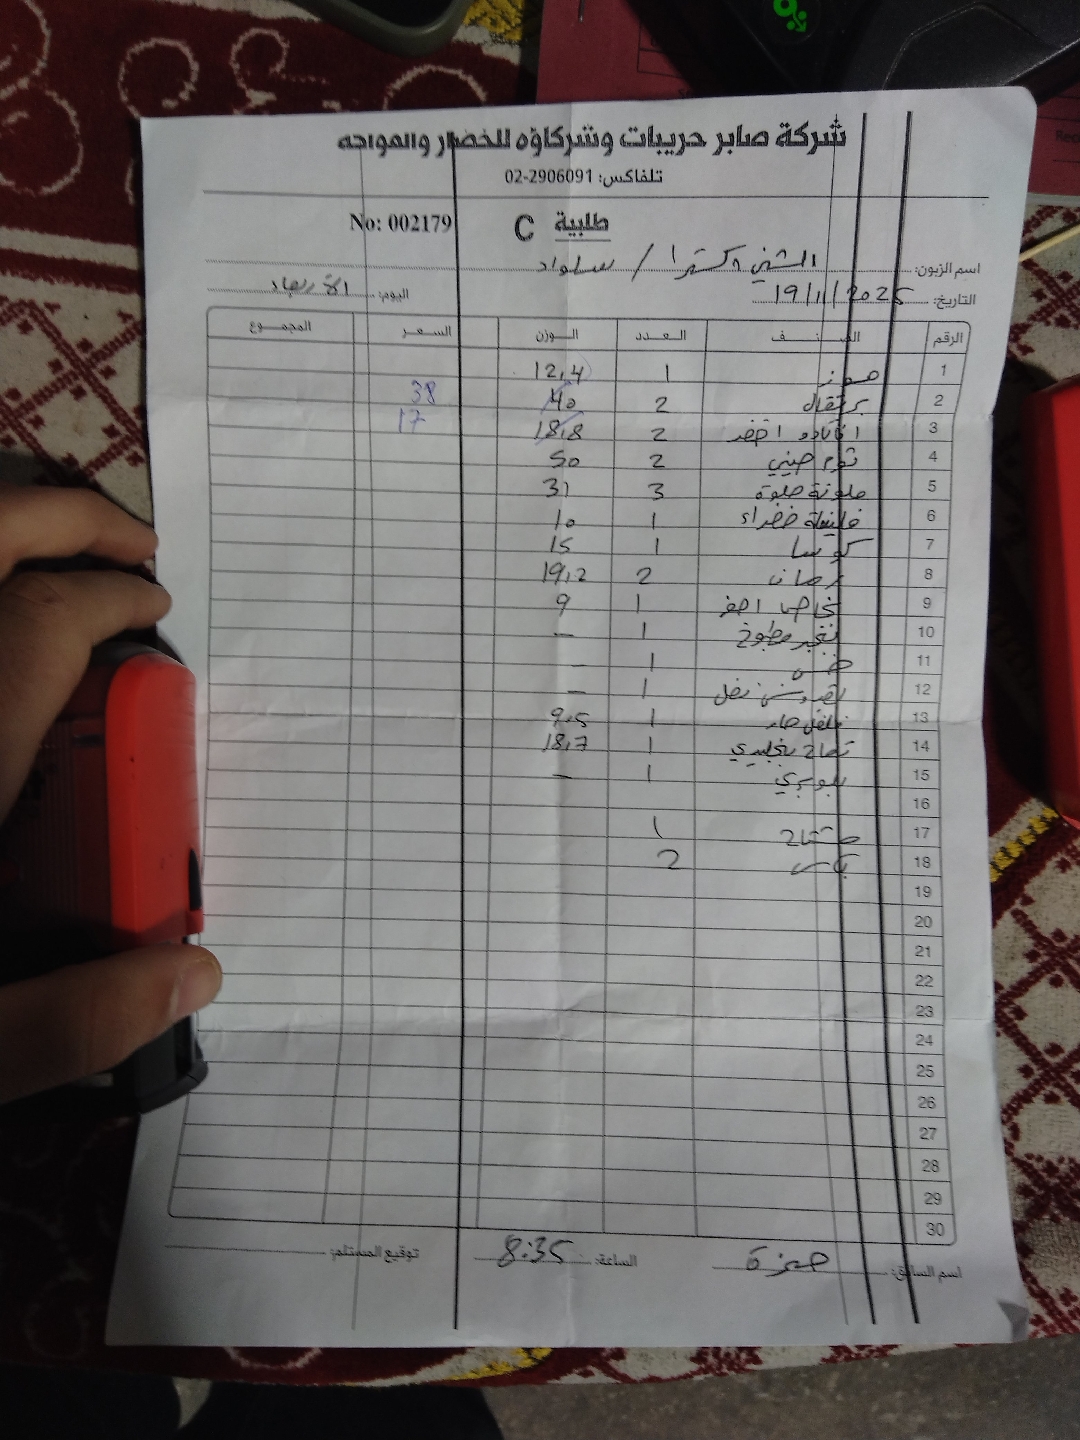 شركة صابر حريبات وشركاؤه للخضار والفواكه
تلفاكس: 02-2906091
طلبية C No: 002179
اسم الزبون: الشني اكسترا / سلواد
التاريخ: 19/11/2025 اليوم: الأربعاء
الرقم الصنف العدد الوزن السعر المجموع
1 موز 1 12,4
2 برتقال 2 40 38
3 افوكادو اخضر 2 18,8 17
4 ثوم صيني 2 50
5 ملونة حلوة 3 31
6 فليفلة خضراء 1 10
7 كوسا 1 15
8 رمان 2 19,2
9 اصفر 1 9
10 مطبوخ 1 —
11 1 —
12 1 —
13 فلفل حار 1 9,5
14 تفاح 1 18,7
15 1 —
16
17 1
18 2
19
20
21
22
23
24
25
26
27
28
29
30
اسم السائق: حمزة الساعة: 8:35 توقيع المستلم: